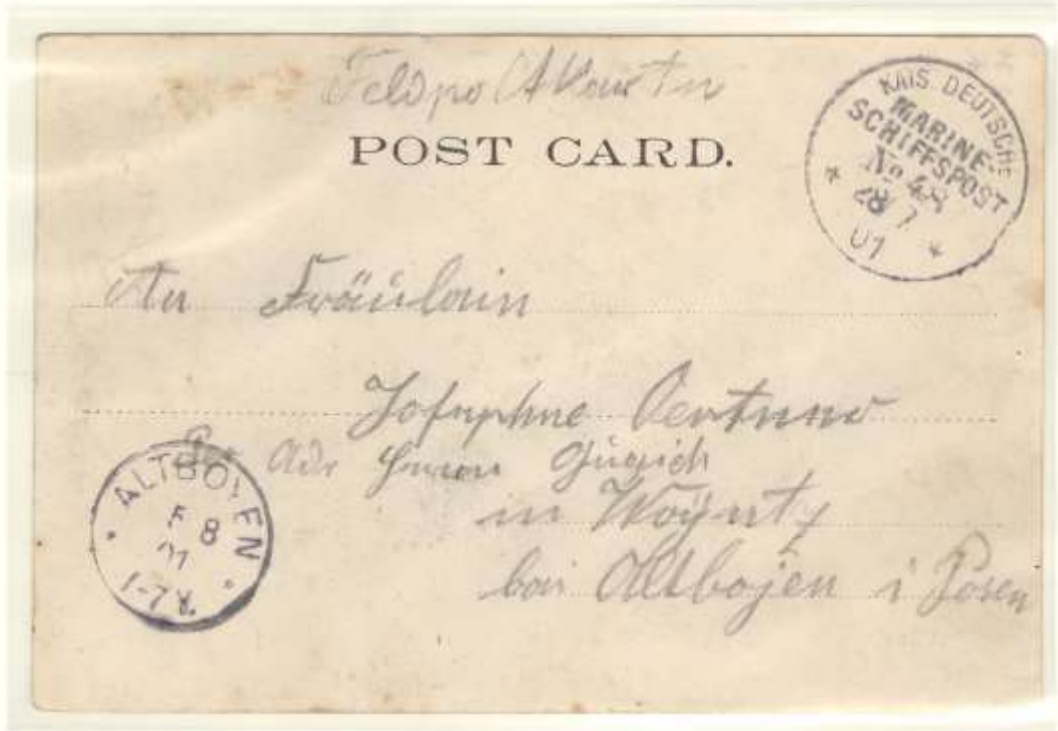 Feldpostkarte
POST CARD.
KAIS. DEUTSCHE
MARINE-
SCHIFFSPOST
No 48
28 7
01
An Fräulein
Josephine
Adr Herrn
in
bei Altbojen i Posen
ALTBOYEN
8
01